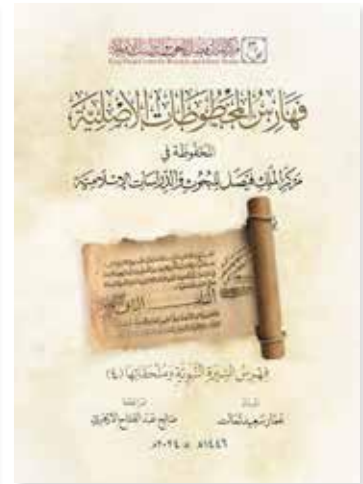 مركز الملك فيصل للبحوث والدراسات الإسلامية
King Faisal Center for Research and Islamic Studies
فهارس المخطوطات الأصلية
المحفوظة في
مركز الملك فيصل للبحوث والدراسات الإسلامية
فهرس السيرة النبوية وملحقاتها (٤)
إعداد
مراجعة
عمار سعيد تمالت
صالح عبد الفتاح الأزهري
١٤٤٦هـ = ٢٠٢٤م